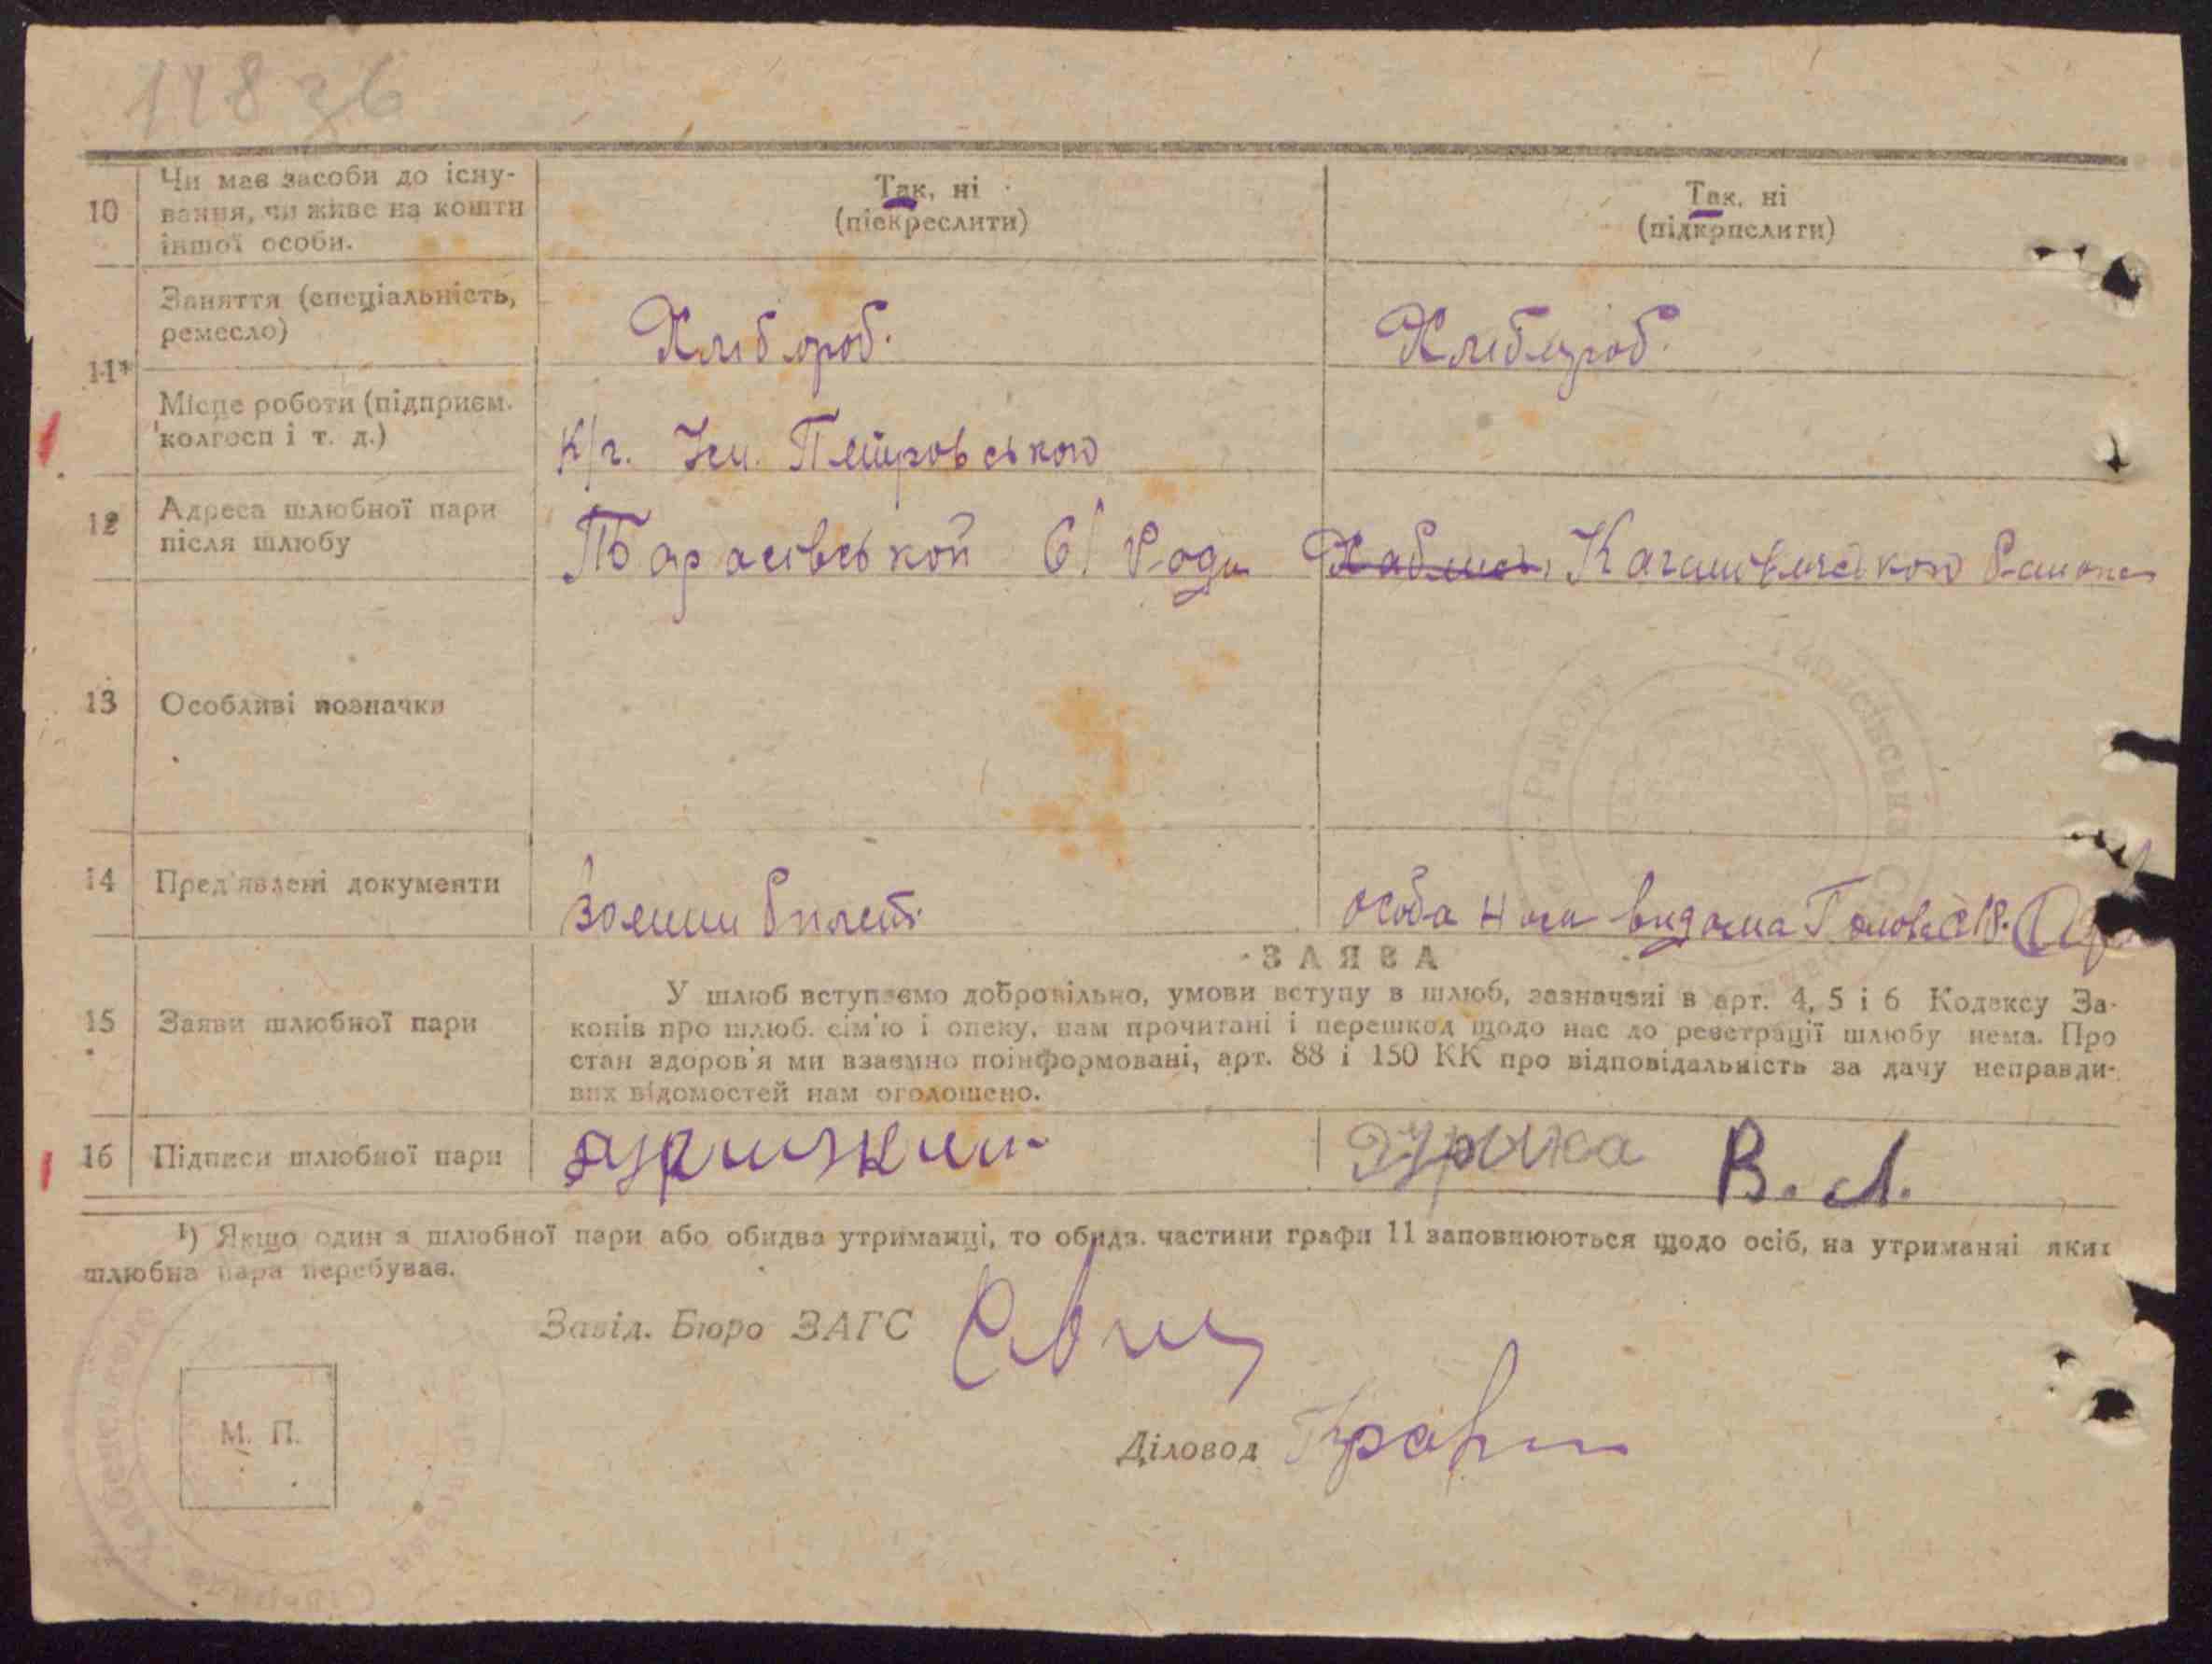 118 зв
10
Чи має засоби до існу-
вання, чи живе на кошти
іншої особи.
Так, ні
(піекреслити)
Так, ні
(підкрпслити)
11¹
Заняття (спеціальність,
ремесло)
Хлібороб.
Хлібороб.
Місце роботи (підприєм.
колгосп і т. д.)
К/г. Ім. Петровського
12
Адреса шлюбної пари
після шлюбу
Тарасівськой С/Ради Кагановичського Района
13
Особливі позначки
14
Пред'явлені документи
Воєнии билет.
особа видома Голові С/Р.
15
Заяви шлюбної пари
ЗАЯВА
У шлюб вступаємо добровільно, умови вступу в шлюб, зазначені в арт. 4, 5 і 6 Кодексу За-
конів про шлюб. сім'ю і опеку, нам прочитані і перешкод щодо нас до реєстрації шлюбу нема. Про
стан здоров'я ми взаємно поінформовані, арт. 88 і 150 КК про відповідальність за дачу неправди-
вих відомостей нам оголошено.
16
Підписи шлюбної пари
В. Л.
¹) Якщо один з шлюбної пари або обидва утриманці, то обидв. частини графи 11 заповнюються щодо осіб, на утриманні яких
шлюбна пара перебуває.
Завід. Бюро ЗАГС
Діловод
М. П.
Тарасівська